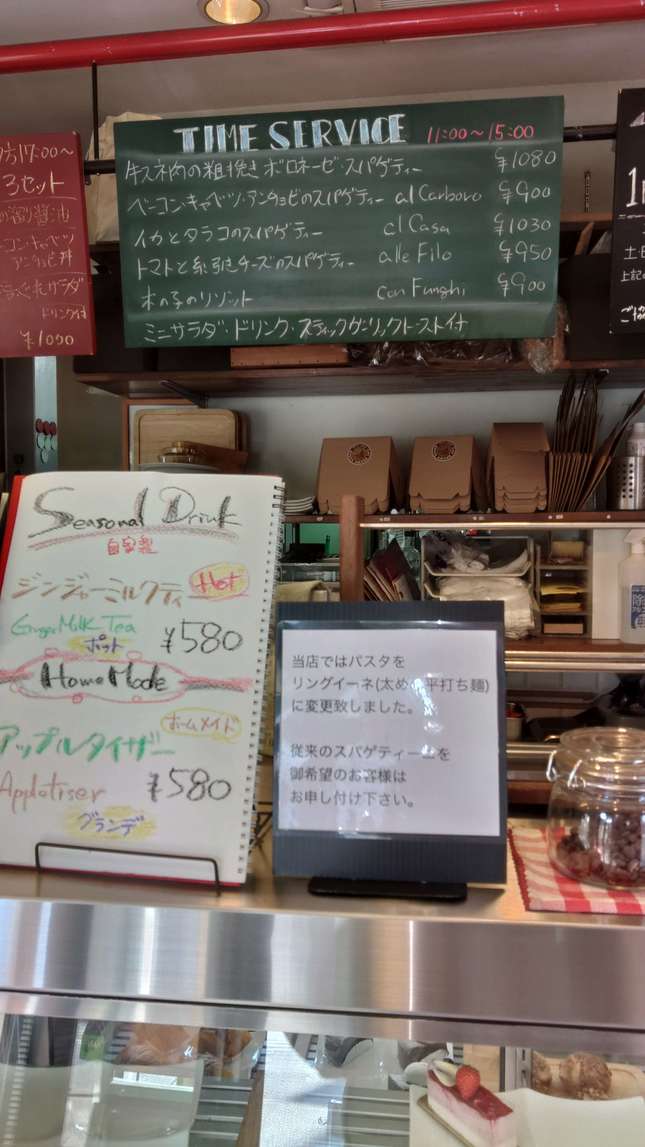 TIME SERVICE 11:00～15:00
牛スネ肉の粗挽きボロネーゼ・スパゲティー ¥1080
ベーコン・キャベツ・アンチョビのスパゲティー al Carboro ¥900
イカとタラコのスパゲティー al Casa ¥1030
トマトと糸引きチーズのスパゲティー alle Filo ¥950
木の子のリゾット Con Funghi ¥900
ミニサラダ・ドリンク・スティックガーリックトースト付
17:00～
3セット
ーコン・キャベツ
アンチョビ丼
サラダ
ドリンク付
¥1000
土日
上記の
Seasonal Drink
自家製
ジンジャーミルクティ Hot
Ginger Milk Tea
ポット ¥580
Home Made
ホームメイド
アップルタイザー
Appletiser ¥580
グランデ
当店ではパスタを
リングイーネ(太め 平打ち麺)
に変更致しました。
従来のスパゲティーニを
御希望のお客様は
お申し付け下さい。